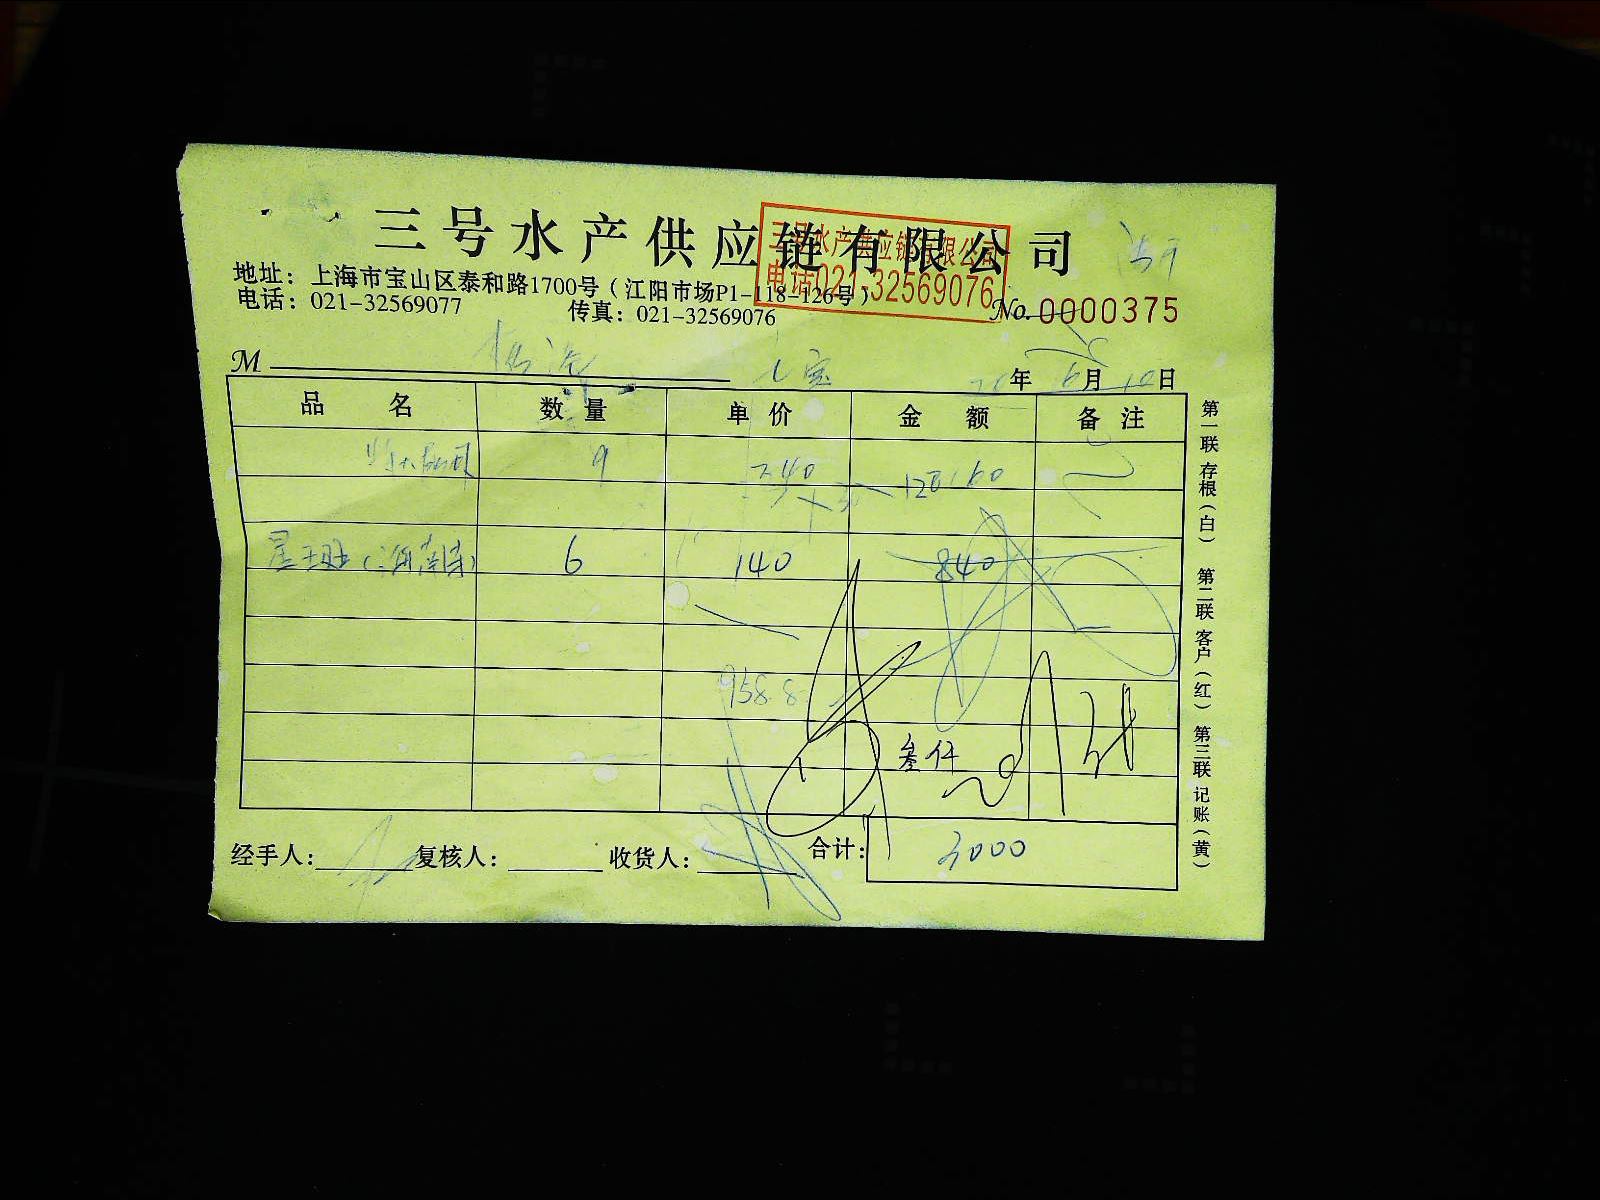 三号水产供应链有限公司
三号水产供应链有限公司
电话021-32569076
地址：上海市宝山区泰和路1700号（江阳市场P1-118-126号）
电话：021-32569077 传真：021-32569076
No. 0000375
M 七宝 年 6月10日
品名 数量 单价 金额 备注
9 340
6 140 840
958.8
叁仟
经手人： 复核人： 收货人： 合计： 3000
第一联存根（白） 第二联客户（红） 第三联记账（黄）